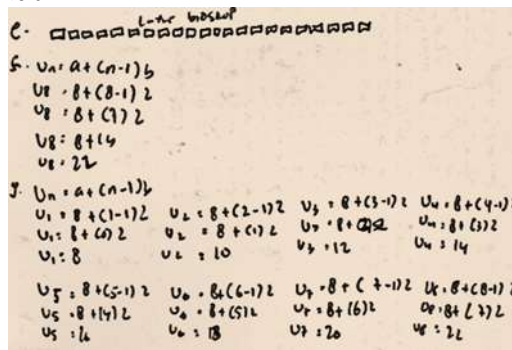 Layar bioskop
e.
f. Un = a + (n-1) b
U8 = 8 + (8-1) 2
U8 = 8 + (7) 2
U8 = 8 + 14
U8 = 22
g. Un = a + (n-1) b
U1 = 8 + (1-1) 2
U1 = 8 + (0) 2
U1 = 8
U2 = 8 + (2-1) 2
U2 = 8 + (1) 2
U2 = 10
U3 = 8 + (3-1) 2
U3 = 8 + (2) 2
U3 = 12
U4 = 8 + (4-1) 2
U4 = 8 + (3) 2
U4 = 14
U5 = 8 + (5-1) 2
U5 = 8 + (4) 2
U5 = 16
U6 = 8 + (6-1) 2
U6 = 8 + (5) 2
U6 = 18
U7 = 8 + (7-1) 2
U7 = 8 + (6) 2
U7 = 20
U8 = 8 + (8-1) 2
U8 = 8 + (7) 2
U8 = 22